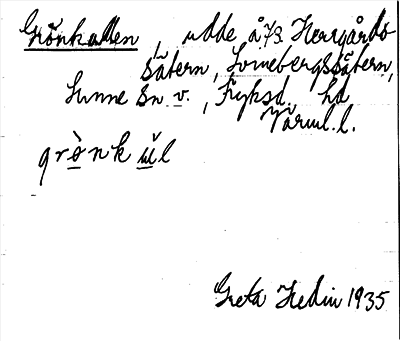 Grönkullen, udde å 7/8 Herrgårds
Sätern, Lornebergssätern,
Sunne sn v., Fryksd. hd
Värml. l.
grònkŭl
Greta Hedin 1935